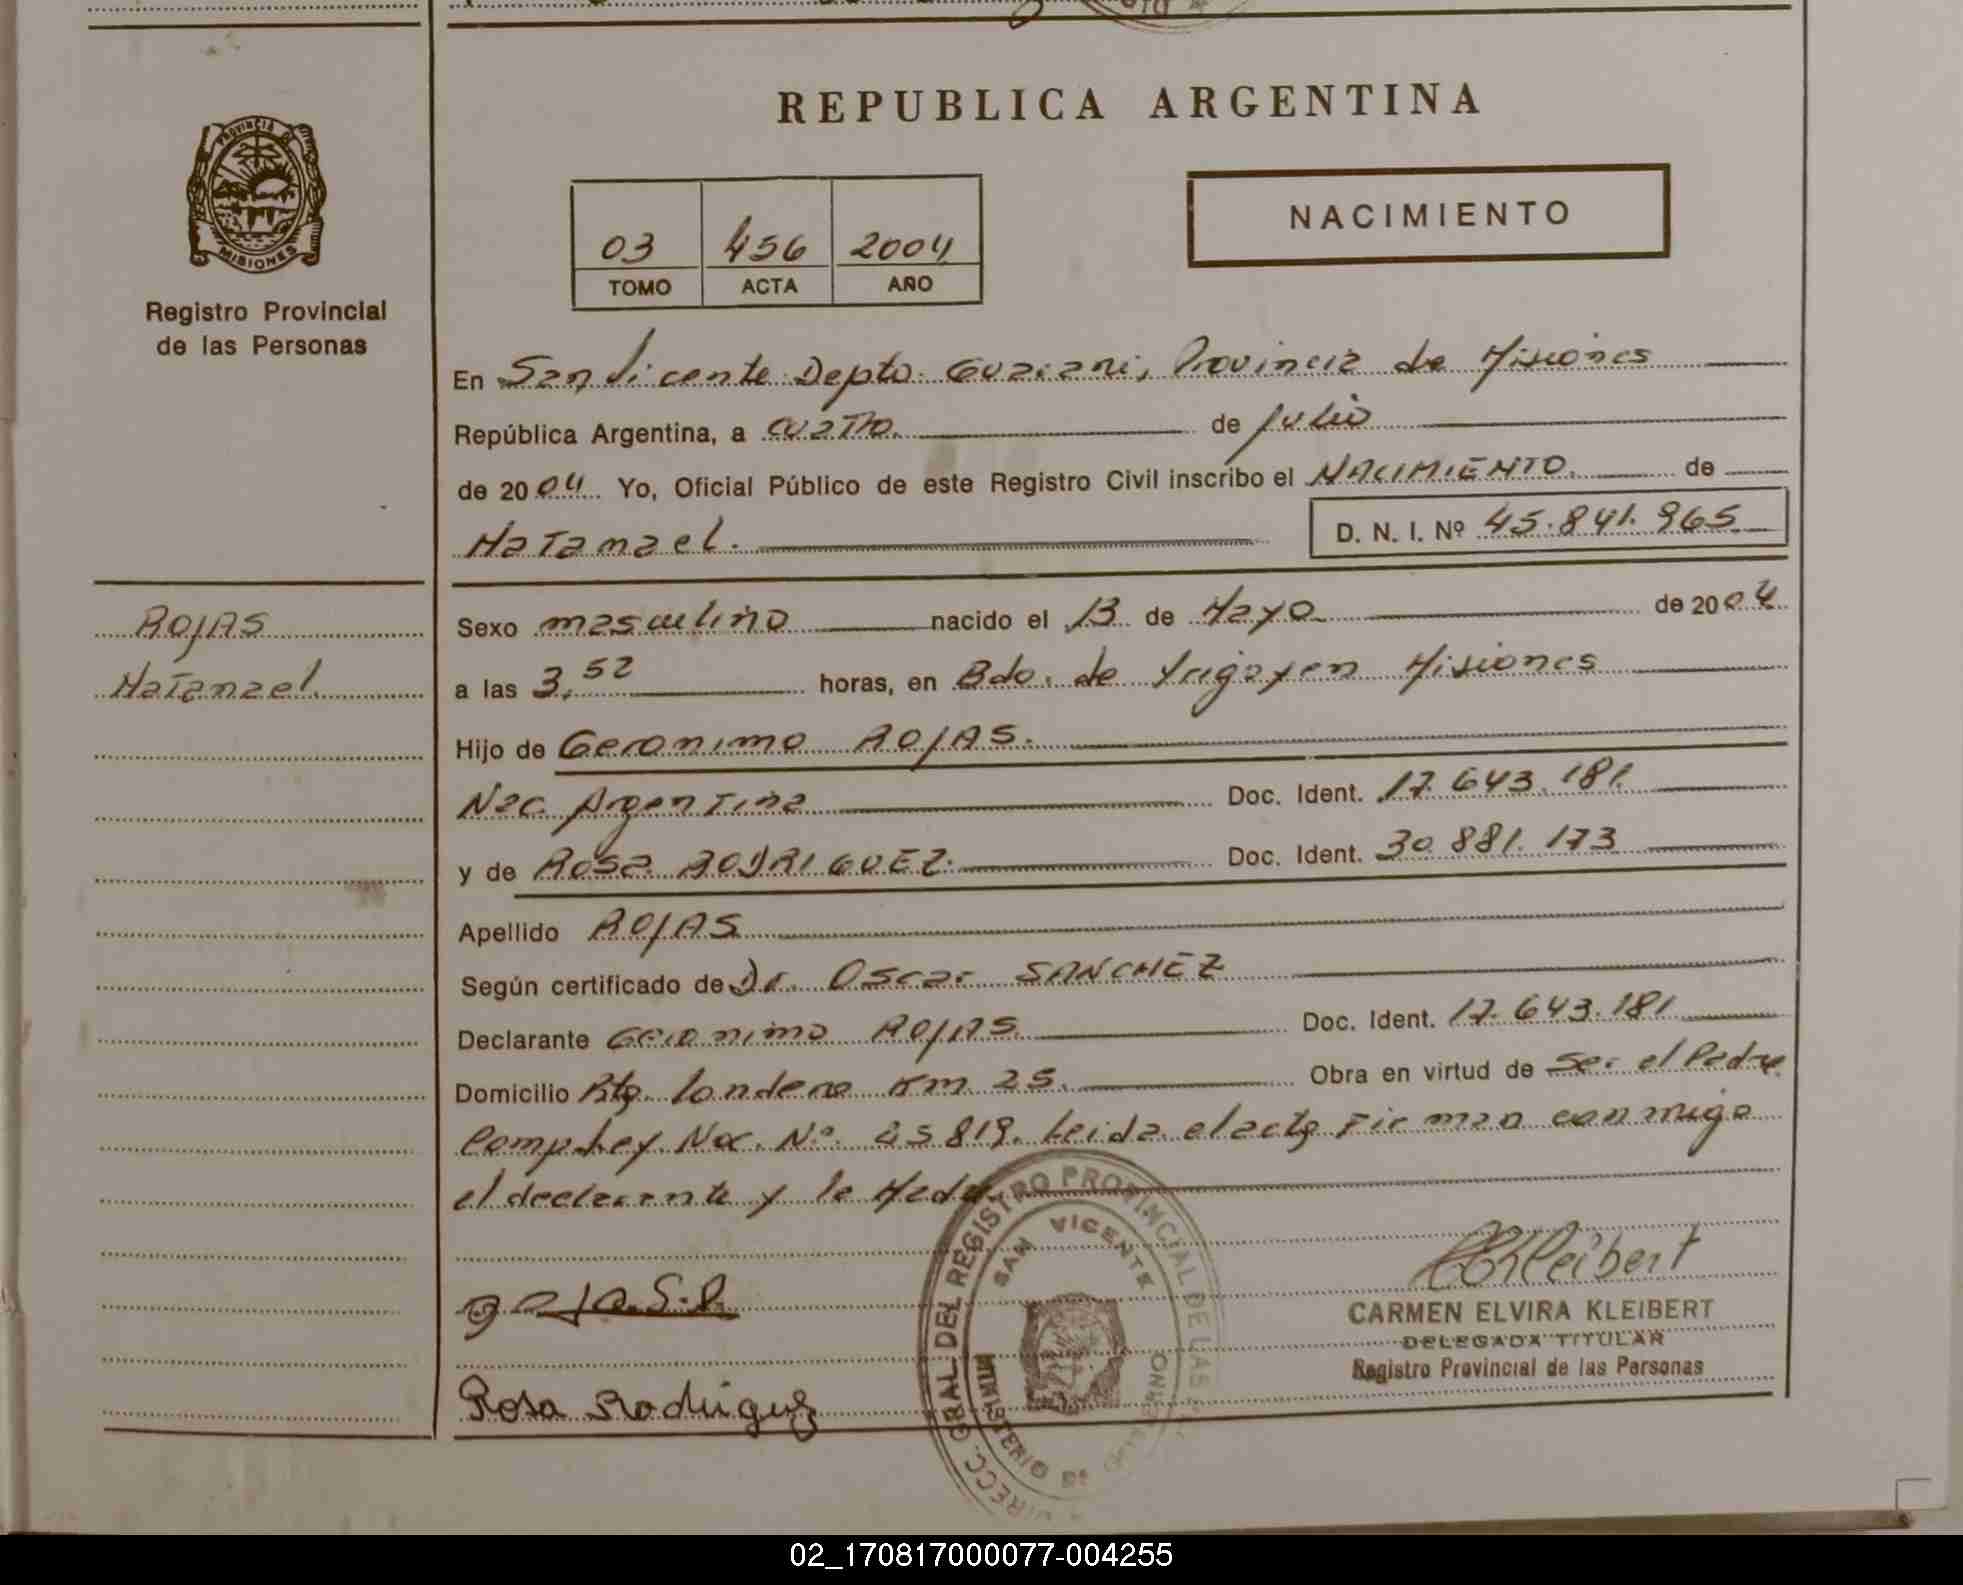 REPUBLICA ARGENTINA
PROVINCIA DE
MISIONES
Registro Provincial
de las Personas
NACIMIENTO
03 456 2004
TOMO ACTA AÑO
En San Vicente Depto. Guarani, Provincia de Misiones
República Argentina, a cuatro. de Julio
de 2004. Yo, Oficial Público de este Registro Civil inscribo el NACIMIENTO. de
Natanael. D. N. I. Nº 45.841.965
ROJAS
Natanael.
Sexo masculino nacido el 13 de Mayo de 2004
a las 3,52 horas, en Bdo. de Yrigoyen Misiones
Hijo de Geronimo ROJAS.
Nac. Argentina Doc. Ident. 17.643.181.
y de Rosa RODRIGUEZ. Doc. Ident. 30.881.173
Apellido ROJAS
Según certificado de Dr. Oscar SANCHEZ
Declarante Geronimo ROJAS. Doc. Ident. 17.643.181
Domicilio Km 25. Obra en virtud de Ser el Padre
Nac. Nº. 45819. Leida el acta Firman conmigo
el declarante y la Madre
DIRECC. GRAL DEL REGISTRO PROVINCIAL DE LAS
SAN VICENTE
MINISTERIO DE GOBIERNO
Kleibert
CARMEN ELVIRA KLEIBERT
DELEGADA TITULAR
Registro Provincial de las Personas
Rosa Rodriguez
02_170817000077-004255